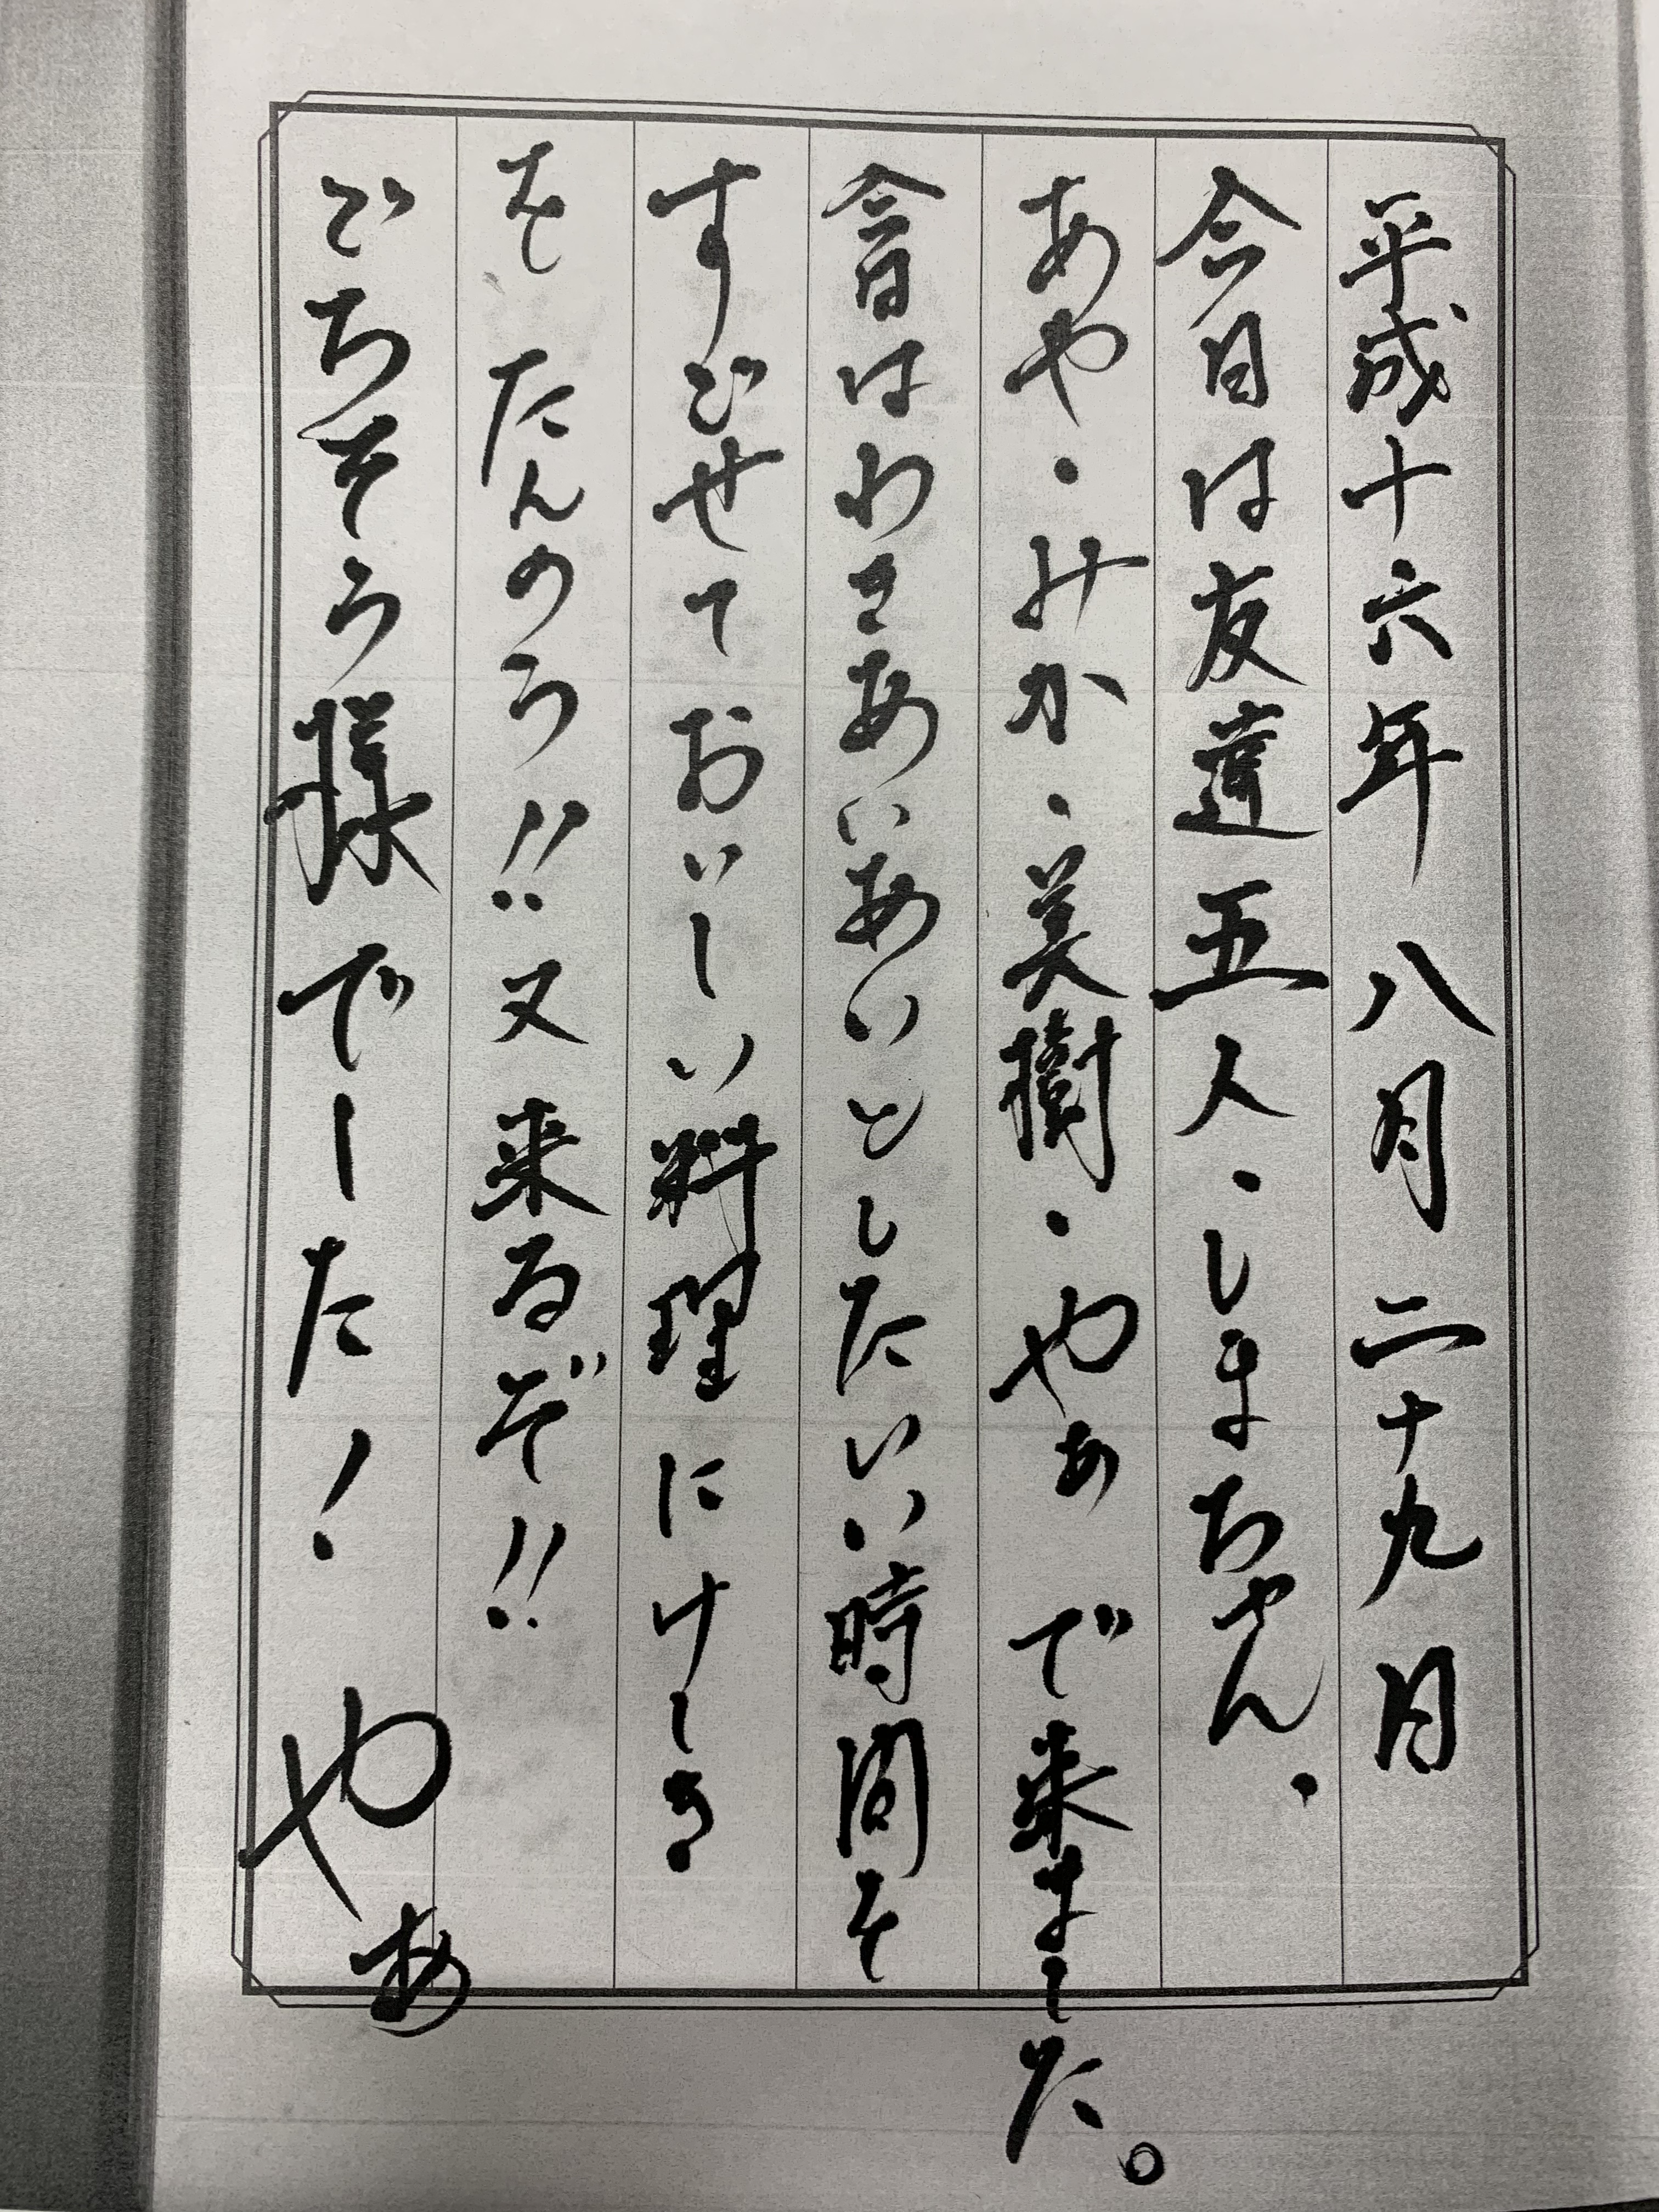 平成十六年八月二十九日
今日は友達五人・しまちゃん・
あや・みか・美樹・やぁで来ました。
今日はわきあいあいとしたいい時間を
すごせておいしい料理にけしき
をたんのう!!又来るぞ!!
ごちそう様でーた!やぁ